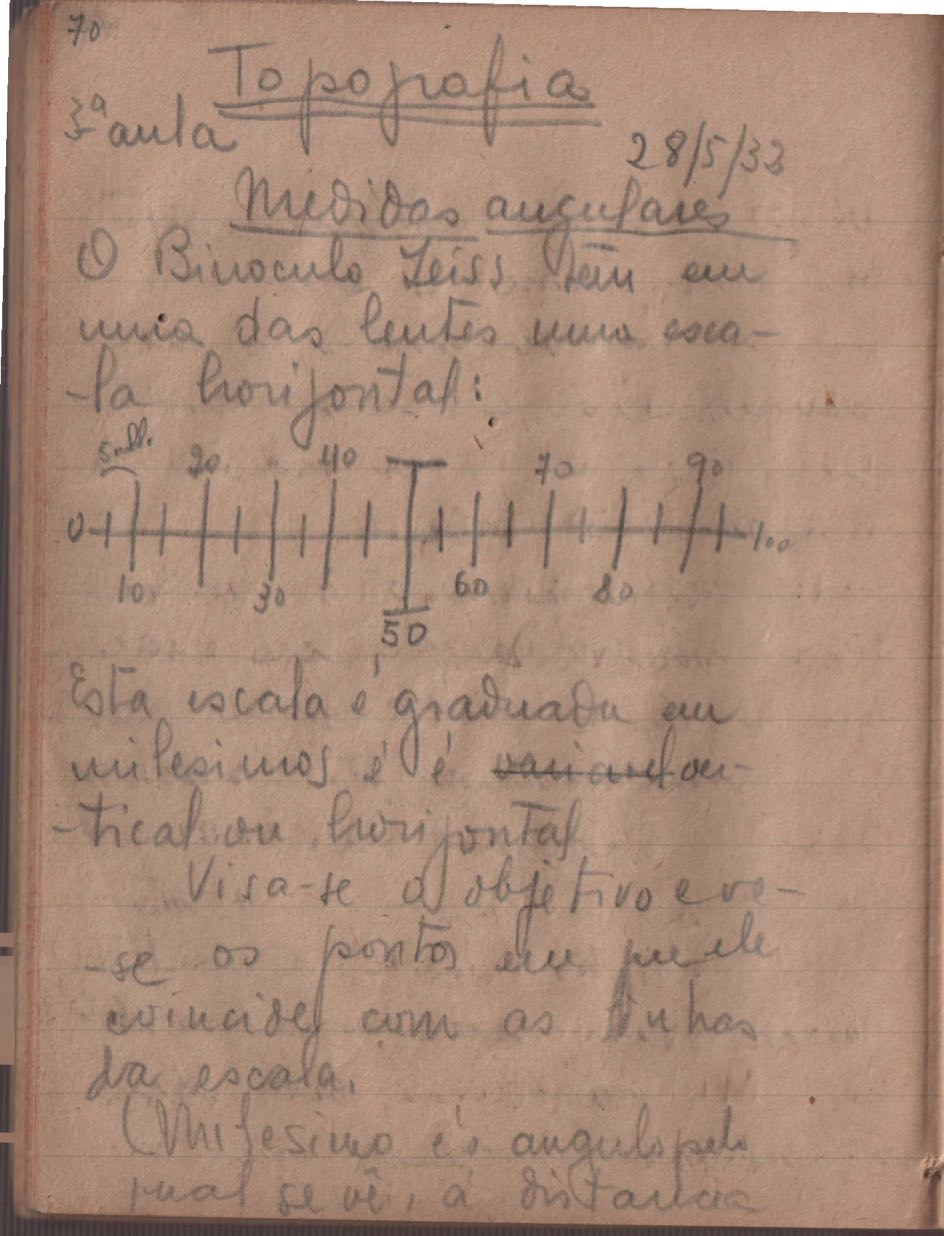 70
Topografia
3ª aula
28/5/33
Medidas angulares
O Binoculo Zeiss tem em
uma das lentes uma esca-
-la horizontal:
5 mill. 20 40 70 90
0 100
10 30 60 80
50
Esta escala é graduada em
milesimos é é variavel ver-
-tical ou horizontal
Visa-se o objetivo e ve-
-se os pontos em que ele
coincide com as linhas
da escala.
(Milesimo é o angulo pelo
qual se vê, á distancia